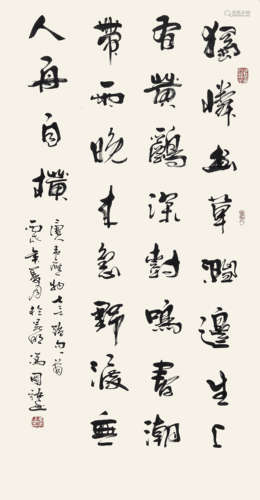 獨憐幽草澗邊生上
有黃鸝深樹鳴春潮
帶雨晚來急野渡無
人舟自橫
唐韋應物七言絕句一首
年夏月於昆明馮國語書